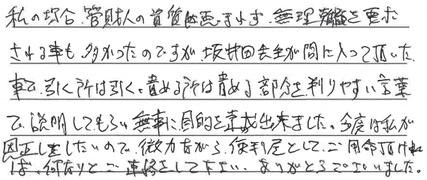 私の場合、管財人の資質は悪すぎ、無理難題を要求
される事も多かったのですが、坂井田会主が間に入って頂いた
事で、引く所は引く、責める所は責める部分を判りやすい言葉
で、説明してもらい無事に目的を達成出来ました。今度は私が
恩返ししたいので、微力ながら、便利屋として、ご用命頂けれ
ば、何なりとご連絡をして下さい。ありがとうございました。